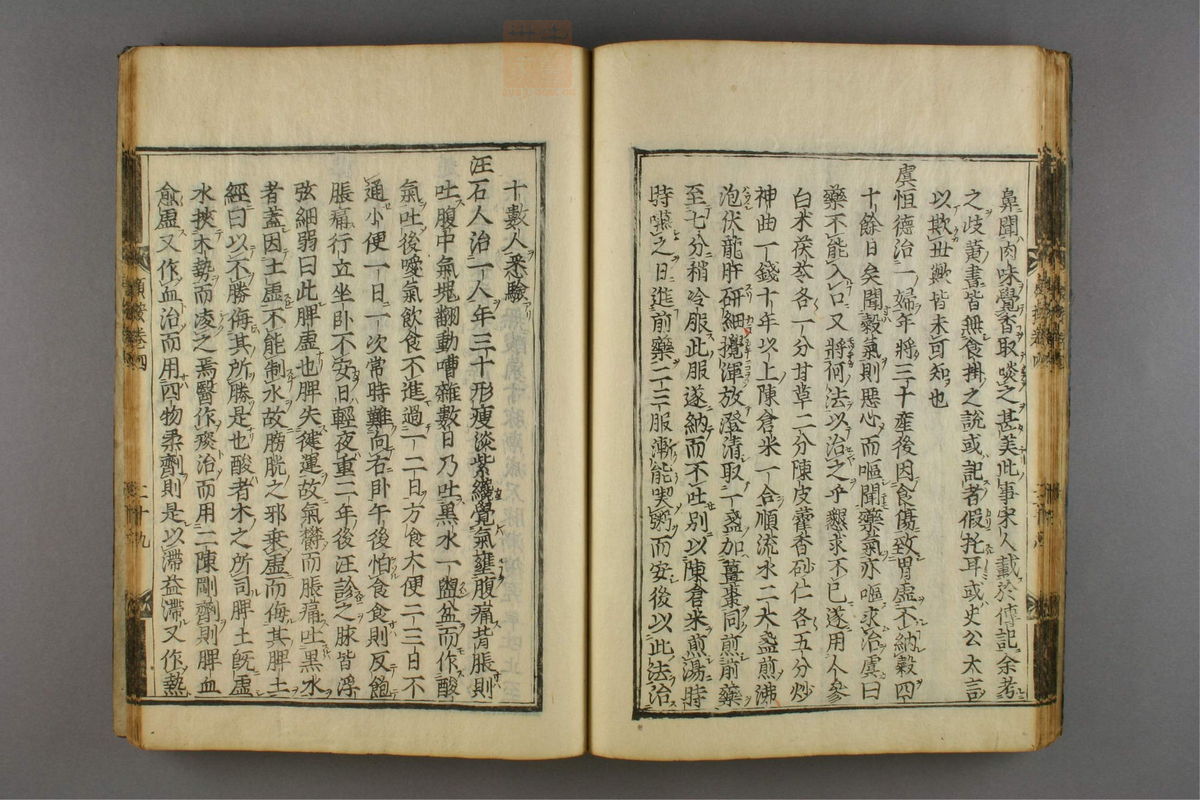 鼻聞肉味覺香取啖之甚美此事宋人載於傳記余考
之岐黄書皆無食掛之説或記者假托耳或史公大言
以欺世歟皆未可知也
虞恒德治一婦年將三十産後因食傷致胃虚不納穀四
十餘日矣聞穀氣則惡心而嘔聞藥氣亦嘔求治虞曰
藥不能入口又將何法以治之乎懇求不已遂用人參
白朮茯苓各一分甘草二分陳皮藿香砂仁各五分炒
神曲一錢十年以上陳倉米一合順流水二大盞煎沸
泡伏龍肝研細攪渾放澄清取一盞加薑棗同煎前藥
至七分稍冷服此服遂納而不吐別以陳倉米煎湯時
時嚥之日進前藥二三服漸能喫粥而安後以此法治
十數人悉驗
汪石人治一人年三十形瘦淡紫纔覺氣壅腹痛背脹則
吐腹中氣塊翻動嘈雜數日乃吐黒水一盥盆而作酸
氣吐後噯氣飲食不進過一二日方食大便二三日不
通小便一日一次常時難向右卧午後怕食食則反飽
脹痛行立坐卧不安日輕夜重二年後汪診之脉皆浮
弦細弱曰此脾虚也脾失健運故氣欝而脹痛吐黒水
者蓋因土虚不能制水故膀胱之邪乘虚而侮其脾土
經曰以不勝侮其所勝是也酸者木之所司脾土既虚
水挾木勢而凌之焉醫作痰治而用二陳剛劑則脾血
愈虚又作血治而用四物柔劑則是以滯益滯又作熱
類案卷四
二十九